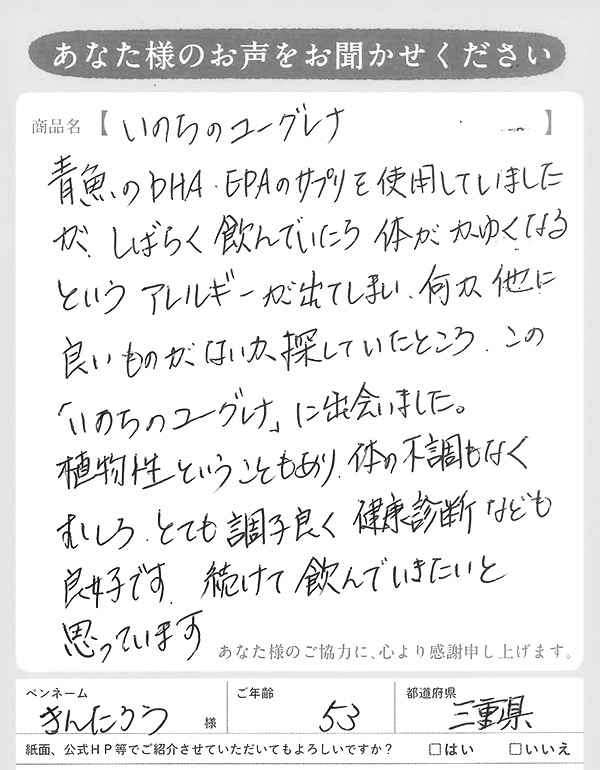 あなた様のお声をお聞かせください
商品名【いのちのユーグレナ】
青魚のDHA・EPAのサプリを使用していました
が、しばらく飲んでいたら体がかゆくなる
というアレルギーが出てしまい、何か他に
良いものがないか、探していたところ、この
「いのちのユーグレナ」に出会いました。
植物性ということもあり、体の不調もなく
むしろ、とても調子良く健康診断なども
良好です。続けて飲んでいきたいと
思っています
あなた様のご協力に、心より感謝申し上げます。
ペンネーム ご年齢 都道府県
きんたろう 様 53 三重県
紙面、公式HP等でご紹介させていただいてもよろしいですか？ □はい □いいえ